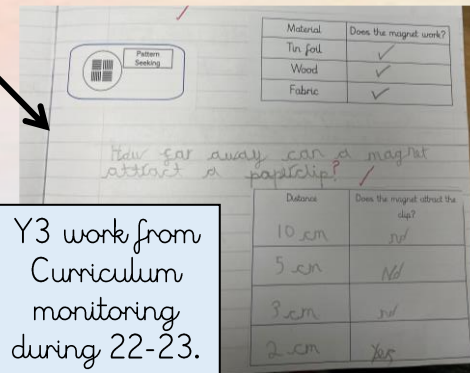 Pattern
Seeking
Material Does the magnet work?
Tin foil ✓
Wood ✓
Fabric ✓
How far away can a magnet
attract a paperclip?
Distance Does the magnet attract the
clip?
10 cm no
5 cm No
3 cm no
2 cm Yes
Y3 work from
Curriculum
monitoring
during 22-23.